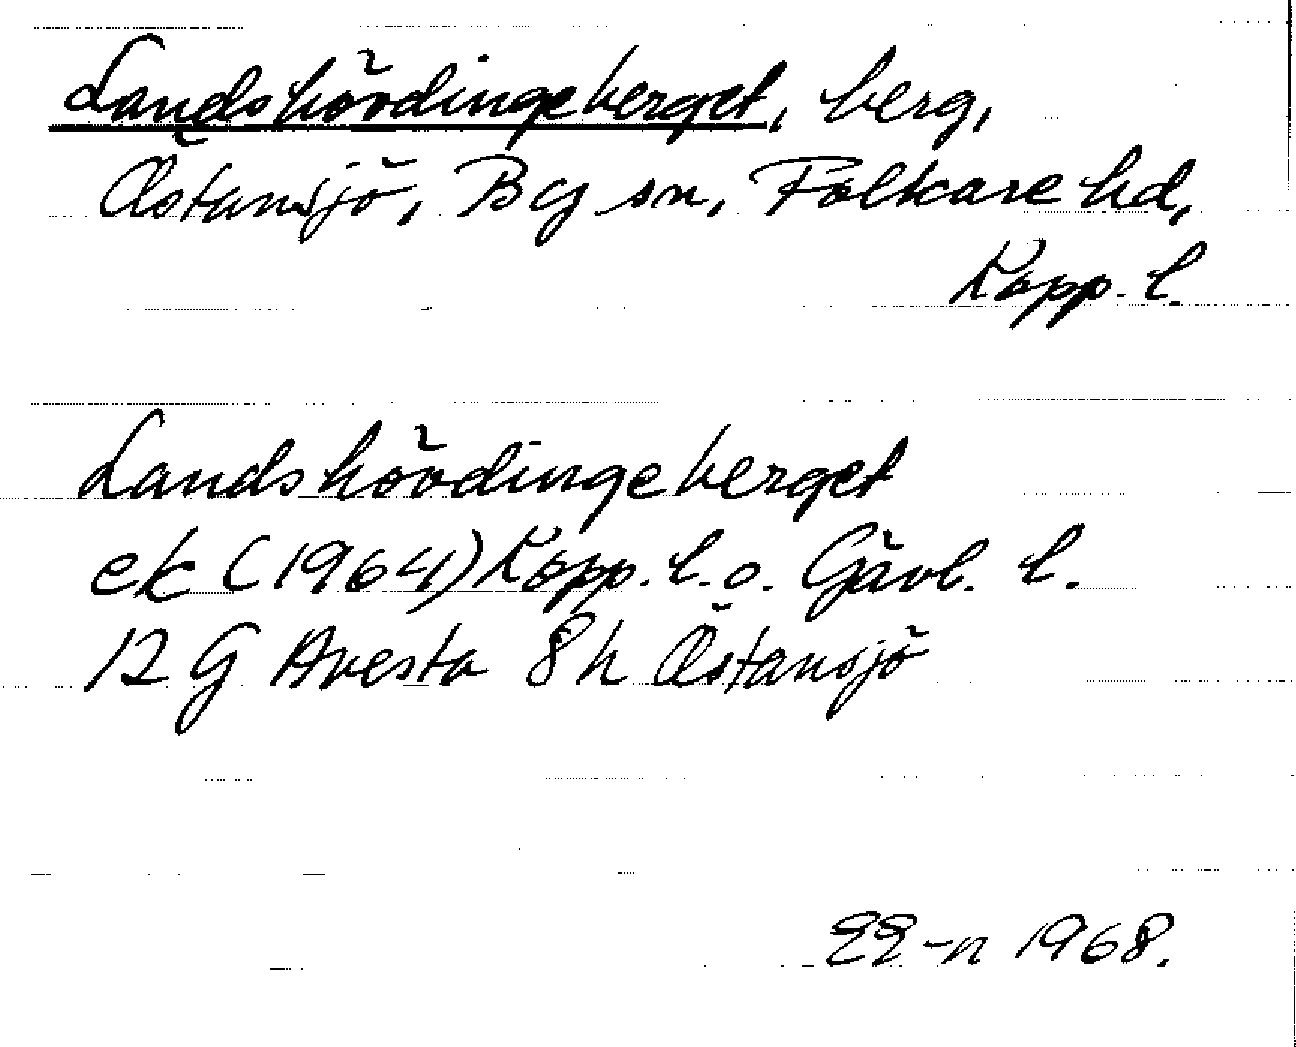 Landshövdingeberget, berg,
Östansjö, By sn, Folkare hd,
Kopp. l.
Landshövdingeberget
ek (1964) Kopp. l. o. Gävl. l.
12 G Avesta 8h Östansjö
EE-n 1968.